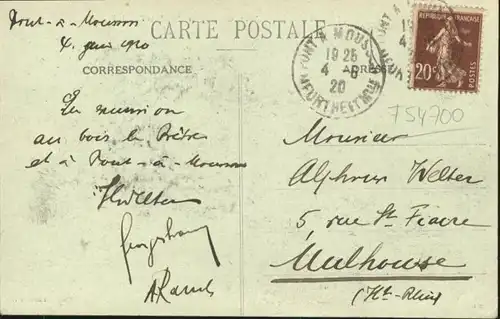 Pont-à-Mousson
4 juin 1920
CARTE POSTALE
CORRESPONDANCE
PONT A MOUSS
19 25
4 - 6
20
MEURTHE ET MOS
REPUBLIQUE FRANÇAISE
20c
754700
En mission
au bois le Prêtre
et à Pont-à-Mousson
Monsieur
Alphonse Welter
5, rue St Fiacre
Mulhouse
(Ht-Rhin)